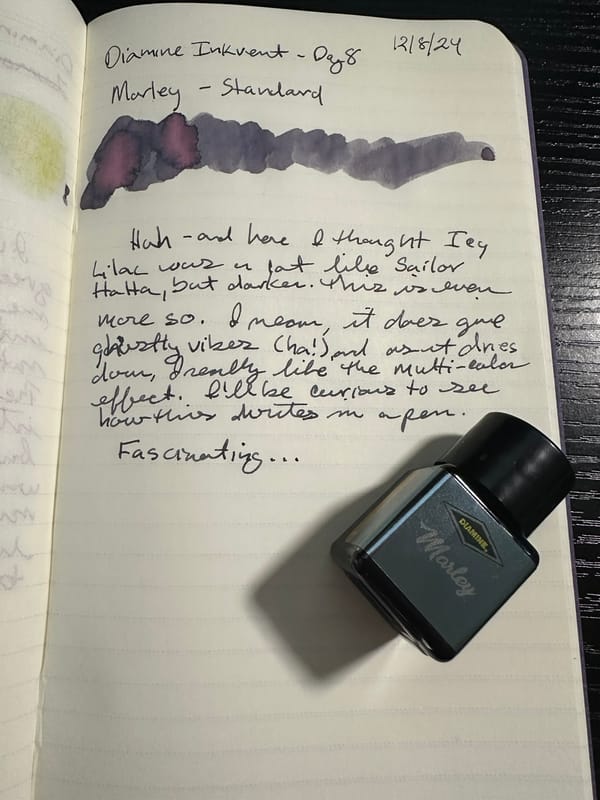 Diamine Inkvent - Day 8
12/8/24
Marley - Standard
Huh - and here I thought Icy
Lilac was a lot like Sailor
Hatha, but darker. This is even
more so. I mean, it does give
ghostly vibes (ha!) and as it dries
down, I really like the multi-color
effect. I'll be curious to see
how this writes in a pen.
Fascinating...
DIAMINE
Marley